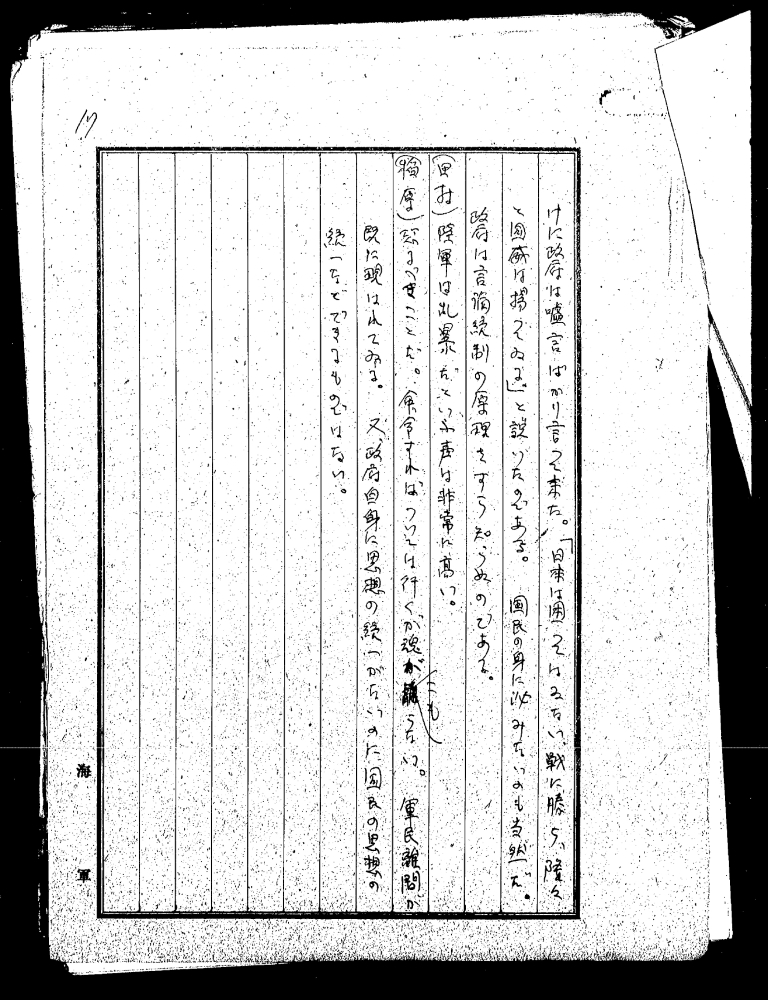 17
けに政府は嘘言ばかり言つて来た。「日本は困つてはゐない、戦に勝ち、隆々
と国威は揚つてゐる」と説いたのである。国民の身に沁みないのも当然だ。
政府は言論統制の原理さすら知らぬのである。
(田村)陸軍は乱暴だといふ声は非常に高い。
(稲原)恐るべきことだ。命令すればついては行くが魂がこもらない。軍民離間が
既に現はれてゐる。又、政府自身に思想の統一がないのに国民の思想の
統一などできるものではない。
海軍